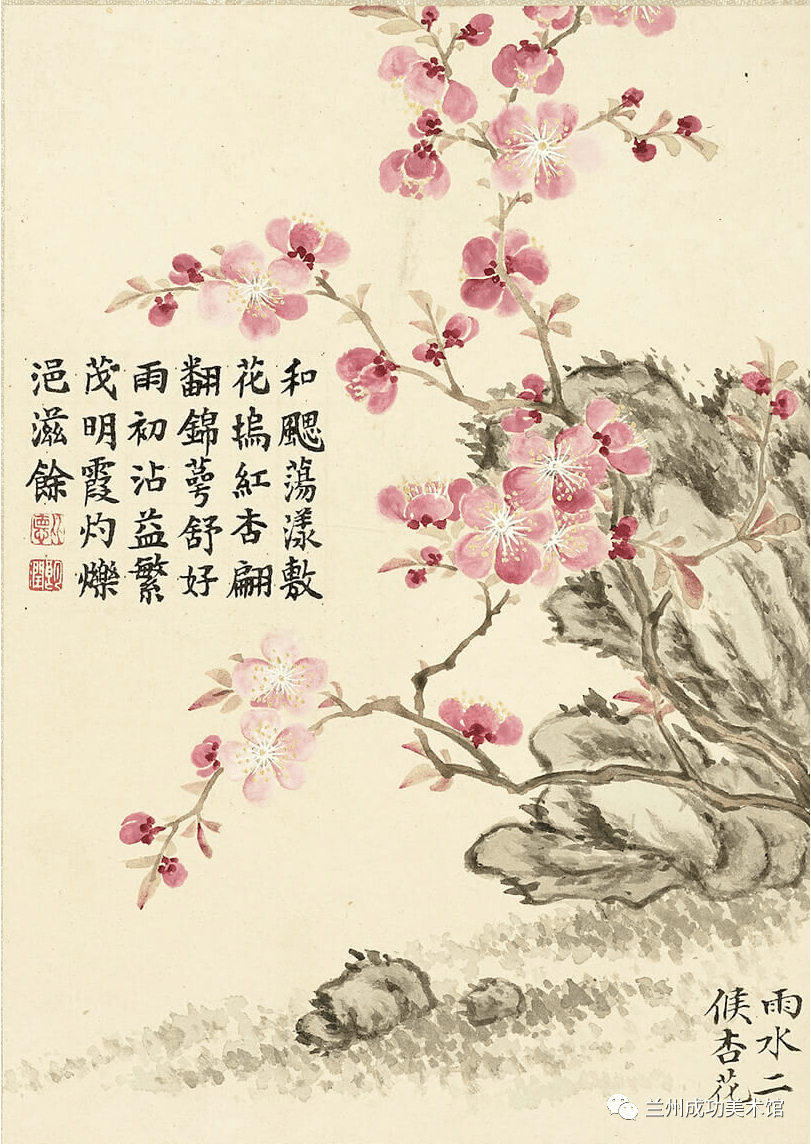 和颸蕩漾敷
花塢紅杏翩
翻錦萼舒好
雨初沾益繁
茂明霞灼爍
浥滋餘
雨水二
候杏花
兰州成功美术馆